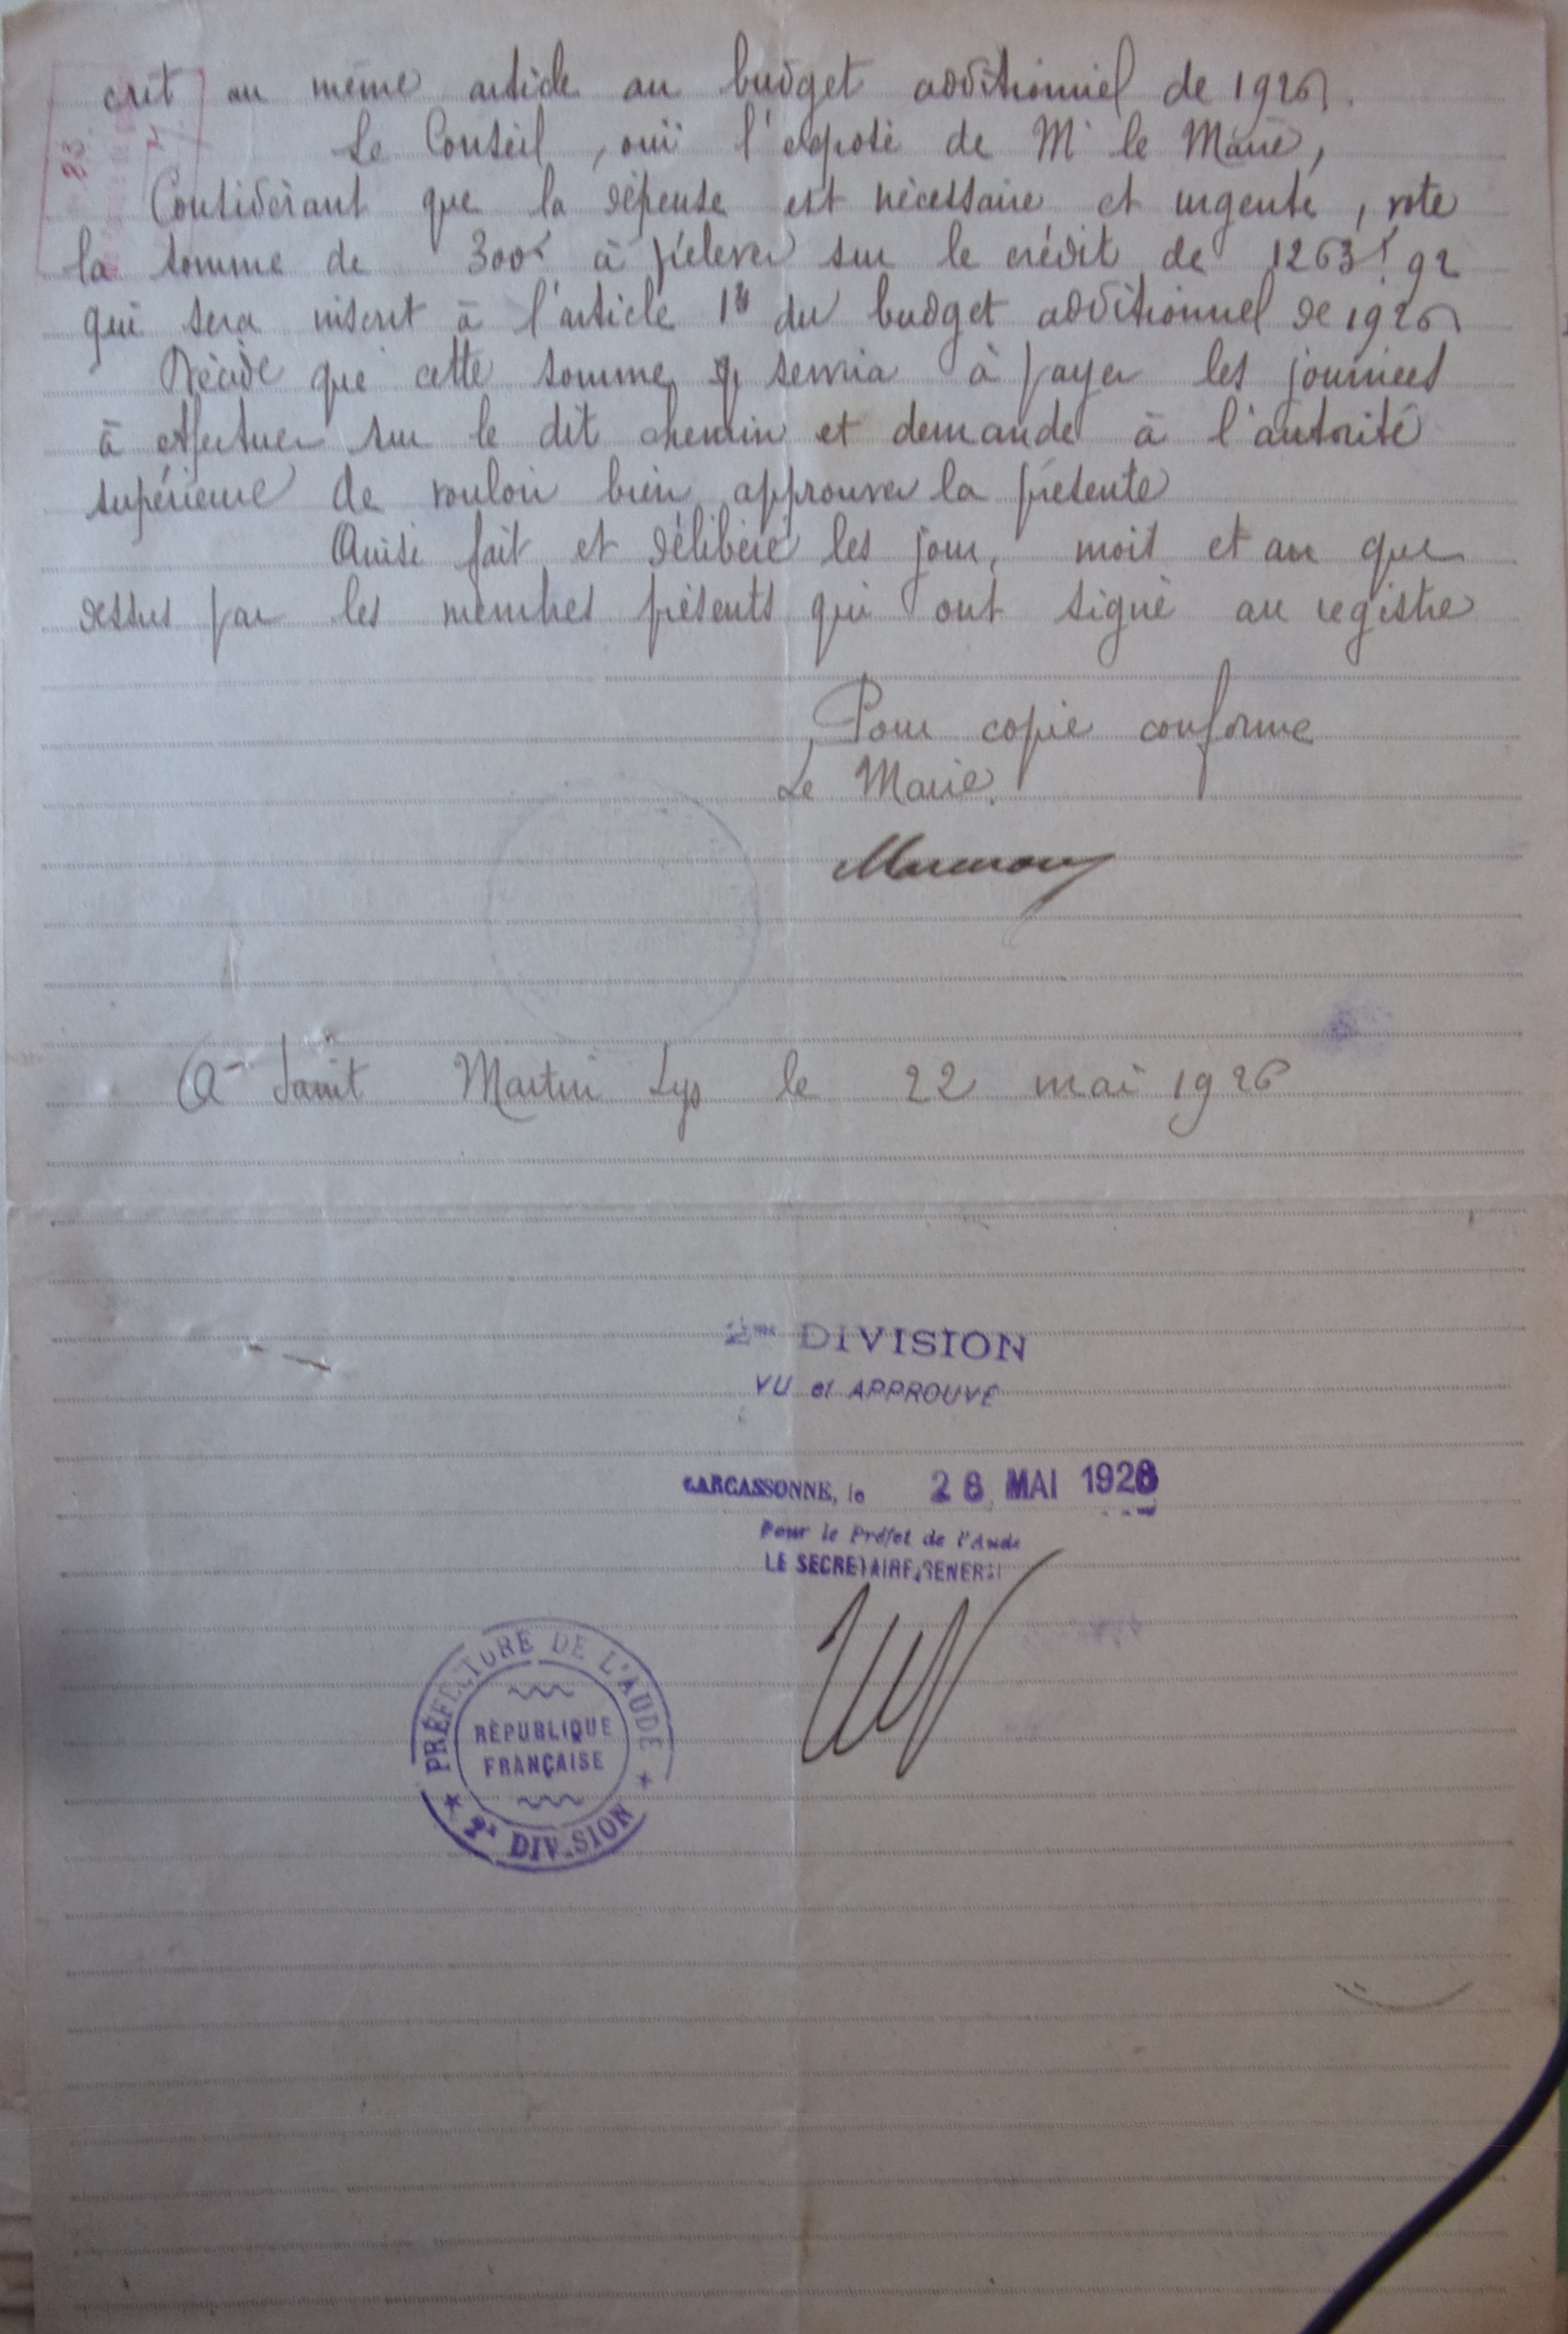 crit au même article au budget additionnel de 1926.
Le Conseil, ouï l'exposé de Mr le Maire,
Considérant que la dépense est nécessaire et urgente, vote
la somme de 300f à prélever sur le crédit de 1263f.92
qui sera inscrit à l'article 18 du budget additionnel de 1926
Décide que cette somme servira à payer les journées
à effectuer sur le dit chemin et demande à l'autorité
supérieure de vouloir bien approuver la présente
Ainsi fait et délibéré les jour, mois et an que
dessus par les membres présents qui ont signé au registre
Pour copie conforme
Le Maire.
A Saint Martin Lys le 22 mai 1926
2me DIVISION
VU et APPROUVÉ
CARCASSONNE, le 28 MAI 1926
Pour le Préfet de l'Aude
LE SECRETAIRE GENERAL
PRÉFECTURE DE L'AUDE
RÉPUBLIQUE
FRANÇAISE
★ 2e DIVISION ★